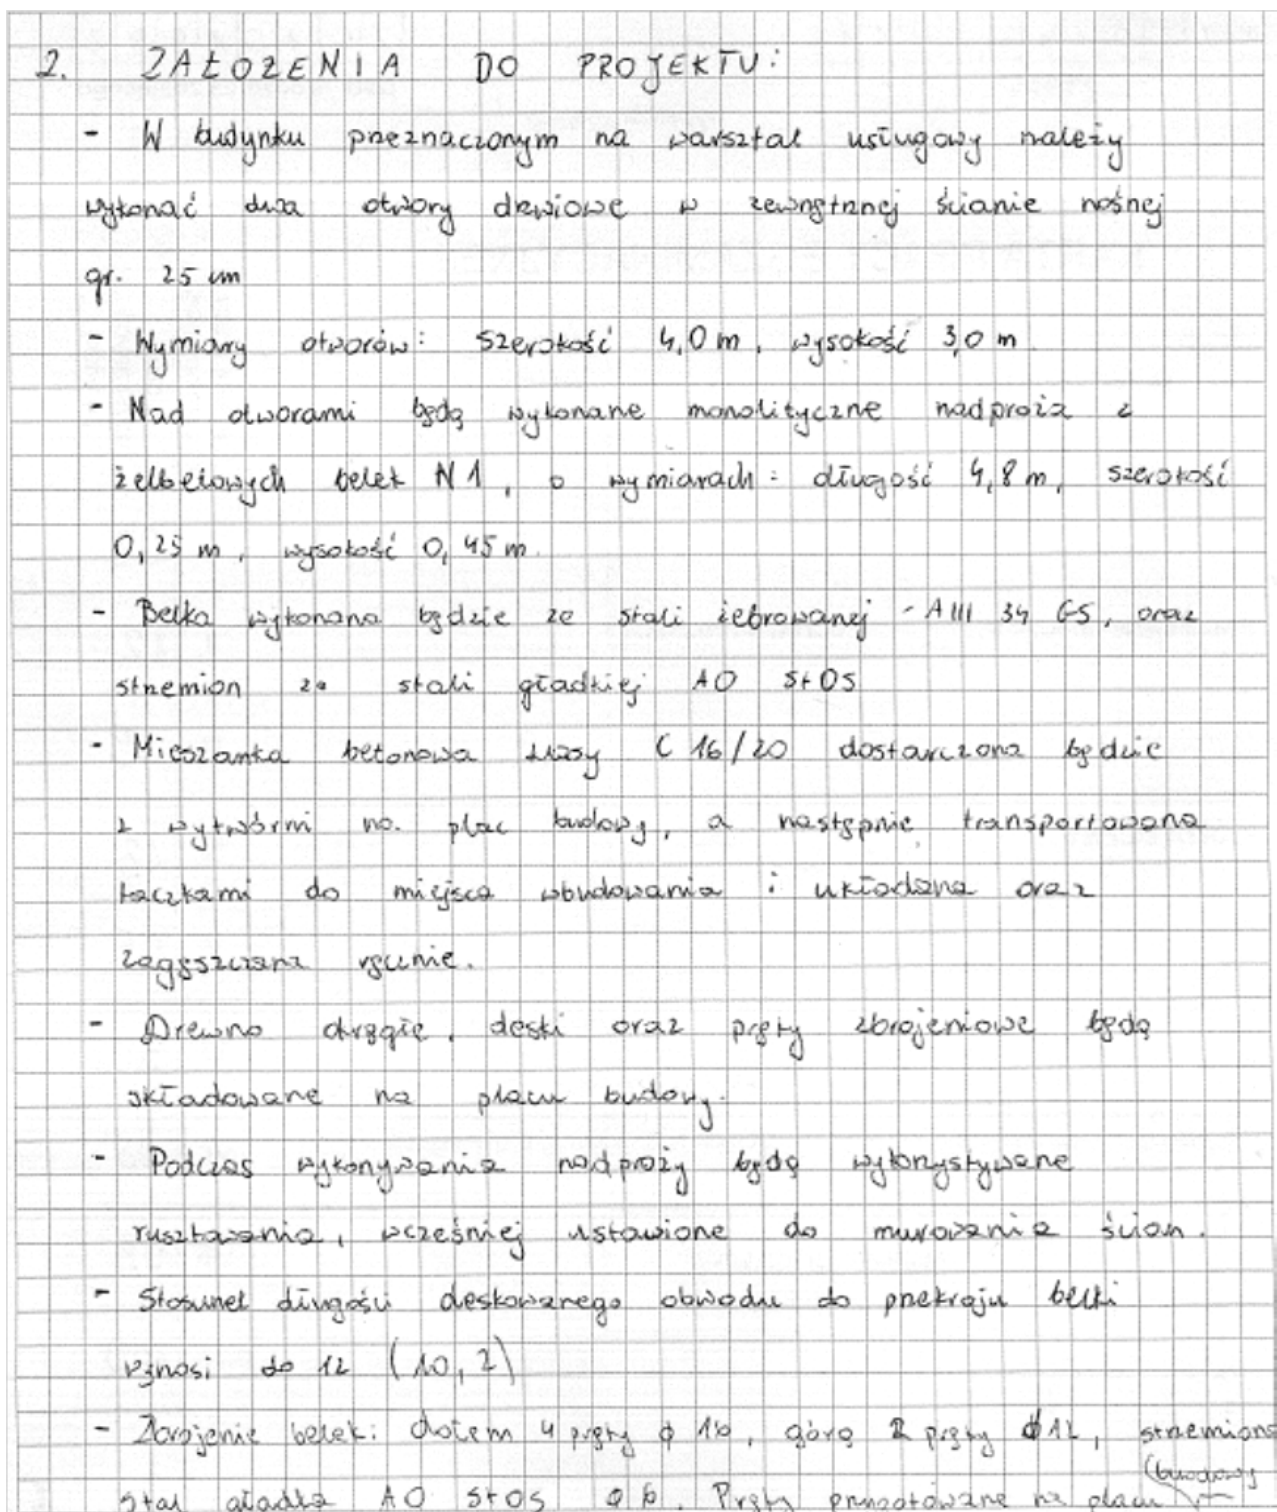 2. ZAŁOŻENIA DO PROJEKTU:
- W budynku przeznaczonym na warsztat usługowy należy
wykonać dwa otwory drzwiowe w zewnętrznej ścianie nośnej
gr. 25 cm
- Wymiary otworów: szerokość 4,0 m, wysokość 3,0 m.
- Nad otworami będą wykonane monolityczne nadproża z
żelbetowych belek N1, o wymiarach: długość 4,8 m, szerokość
0,25 m, wysokość 0,45 m.
- Belka wykonana będzie ze stali żebrowanej - AIII 34 GS, oraz
strzemion ze stali gładkiej A0 St0S
- Mieszanka betonowa klasy C 16/20 dostarczona będzie
z wytwórni na plac budowy, a następnie transportowana
taczkami do miejsca wbudowania i układana oraz
zagęszczana ręcznie.
- Drewno okrągłe, deski oraz pręty zbrojeniowe będą
składowane na placu budowy.
- Podczas wykonywania nadproży będą wykorzystywane
rusztowania, wcześniej ustawione do murowania ścian.
- Stosunek długości deskowanego obwodu do przekroju belki
wynosi do 12 (10,2)
- Zbrojenie belek: dołem 4 pręty φ 16, górą 2 pręty φ 12, strzemiona
stal gładka A0 St0S φ 6. Pręty przygotowane na placu
(budowy